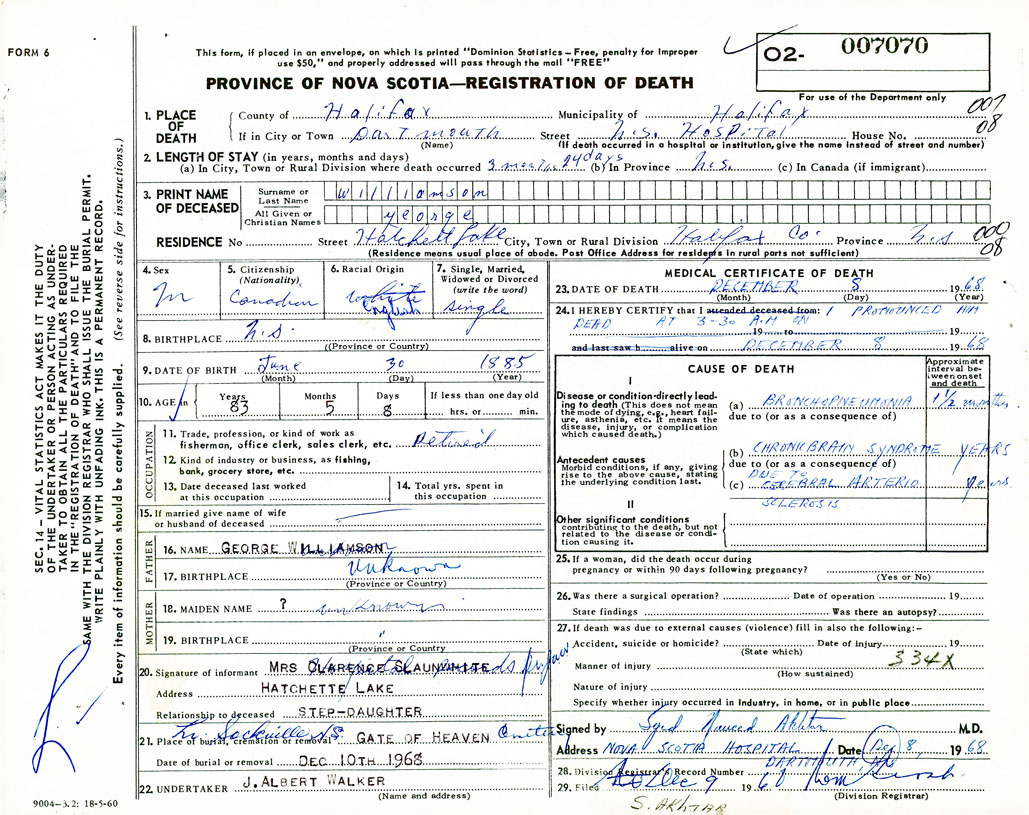 FORM 6
This form, if placed in an envelope, on which is printed "Dominion Statistics – Free, penalty for improper
use $50," and properly addressed will pass through the mail "FREE"
O2- 007070
For use of the Department only
PROVINCE OF NOVA SCOTIA—REGISTRATION OF DEATH
007
08
1. PLACE OF DEATH
County of Halifax Municipality of Halifax
If in City or Town Dartmouth Street N.S. Hospital House No.
(Name) (If death occurred in a hospital or institution, give the name instead of street and number)
2. LENGTH OF STAY (in years, months and days)
(a) In City, Town or Rural Division where death occurred 3 months 24 days (b) In Province N.S. (c) In Canada (if immigrant)
3. PRINT NAME OF DECEASED
Surname or Last Name Williamson
All Given or Christian Names George
RESIDENCE No Street Hatchett Lake City, Town or Rural Division Halifax Co. Province N.S
000
08
(Residence means usual place of abode. Post Office Address for residents in rural parts not sufficient)
4. Sex M
5. Citizenship (Nationality) Canadian
6. Racial Origin White English
7. Single, Married, Widowed or Divorced (write the word) Single
8. BIRTHPLACE N.S.
((Province or Country)
9. DATE OF BIRTH June 30 1885
(Month) (Day) (Year)
10. AGE in Years 83 Months 5 Days 8 If less than one day old hrs. or min.
OCCUPATION
11. Trade, profession, or kind of work as
fisherman, office clerk, sales clerk, etc. Retired
12. Kind of industry or business, as fishing,
bank, grocery store, etc.
13. Date deceased last worked
at this occupation
14. Total yrs. spent in
this occupation
15. If married give name of wife
or husband of deceased
FATHER
16. NAME GEORGE WILLIAMSON
17. BIRTHPLACE Unknown
(Province or Country)
MOTHER
18. MAIDEN NAME ? unknown
19. BIRTHPLACE "
(Province or Country)
20. Signature of informant MRS CLARENCE SLAUNWHITE
Address HATCHETTE LAKE
Relationship to deceased STEP-DAUGHTER
Lr. Sackville N.S.
21. Place of burial, cremation or removal GATE OF HEAVEN Cemetery
Date of burial or removal DEC 10TH 1968
22. UNDERTAKER J. ALBERT WALKER
(Name and address)
MEDICAL CERTIFICATE OF DEATH
23. DATE OF DEATH DECEMBER 8 1968
(Month) (Day) (Year)
24. I HEREBY CERTIFY that I attended deceased from: I PRONOUNCED HIM
DEAD AT 3-30 A.M ON
19 to 19
and last saw h alive on DECEMBER 8, 1968
CAUSE OF DEATH
Approximate interval between onset and death
I
Disease or condition directly leading to death (This does not mean the mode of dying, e.g., heart failure, asthenia, etc. It means the disease, injury, or complication which caused death.)
(a) BRONCHOPNEUMONIA 1 1/2 months
due to (or as a consequence of)
Antecedent causes
Morbid conditions, if any, giving rise to the above cause, stating the underlying condition last.
(b) CHRONIC BRAIN SYNDROME YEARS
due to (or as a consequence of)
DUE TO
(c) CEREBRAL ARTERIO Years
SCLEROSIS
II
Other significant conditions
contributing to the death, but not related to the disease or condition causing it.
25. If a woman, did the death occur during
pregnancy or within 90 days following pregnancy?
(Yes or No)
26. Was there a surgical operation? Date of operation 19
State findings Was there an autopsy?
27. If death was due to external causes (violence) fill in also the following:–
Accident, suicide or homicide? Date of injury 19
(State which)
334X
Manner of injury
(How sustained)
Nature of injury
Specify whether injury occurred in industry, in home, or in public place
Signed by Syed Naweed Akhtar M.D.
Address NOVA SCOTIA HOSPITAL Date Dec 8, 1968
DARTMOUTH, N.S
28. Division Registrar's Record Number
29. Filed Dec 9 196
(Division Registrar)
S. AKHTAR
SEC. 14 – VITAL STATISTICS ACT MAKES IT THE DUTY
OF THE UNDERTAKER OR PERSON ACTING AS UNDER-
TAKER TO OBTAIN ALL THE PARTICULARS REQUIRED
IN THE "REGISTRATION OF DEATH" AND TO FILE THE
SAME WITH THE DIVISION REGISTRAR WHO SHALL ISSUE THE BURIAL PERMIT.
WRITE PLAINLY WITH UNFADING INK. THIS IS A PERMANENT RECORD.
Every item of information should be carefully supplied. (See reverse side for instructions.)
9004–3.2: 18-5-60